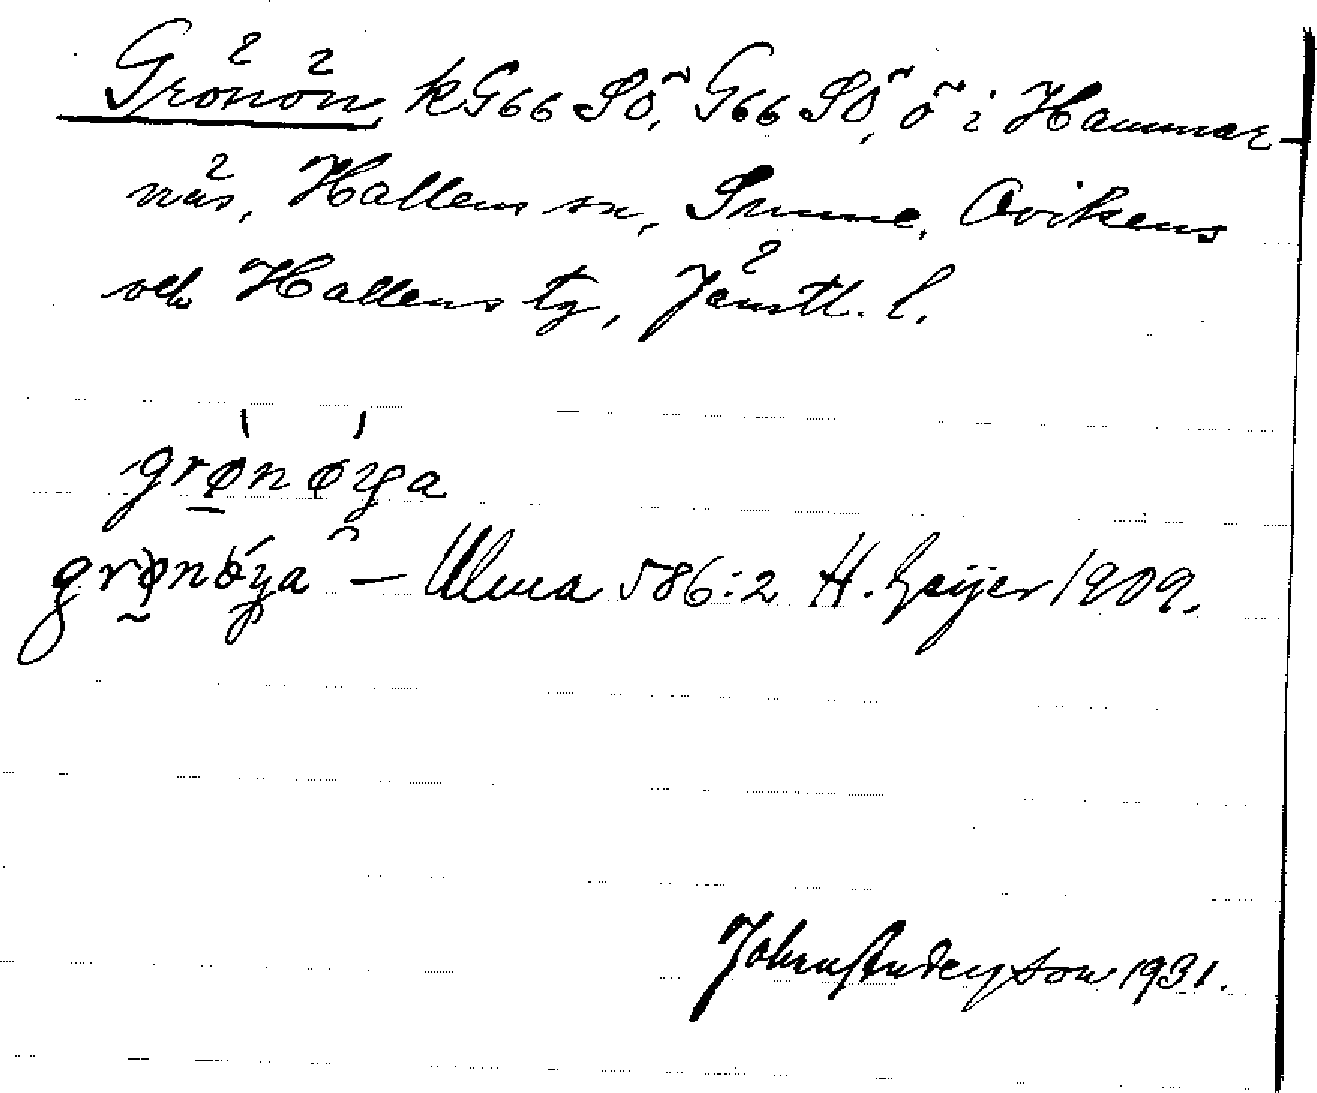 Grönön kG66 SÖ, G66 SÖ, ö i Hammar-
näs, Hallens sn, Sunne, Ovikens
och Hallens tg, Jämtl. l.
grønøya
grønøya — Ulma 586:2 H. Geijer 1909.
John Andersson 1931.